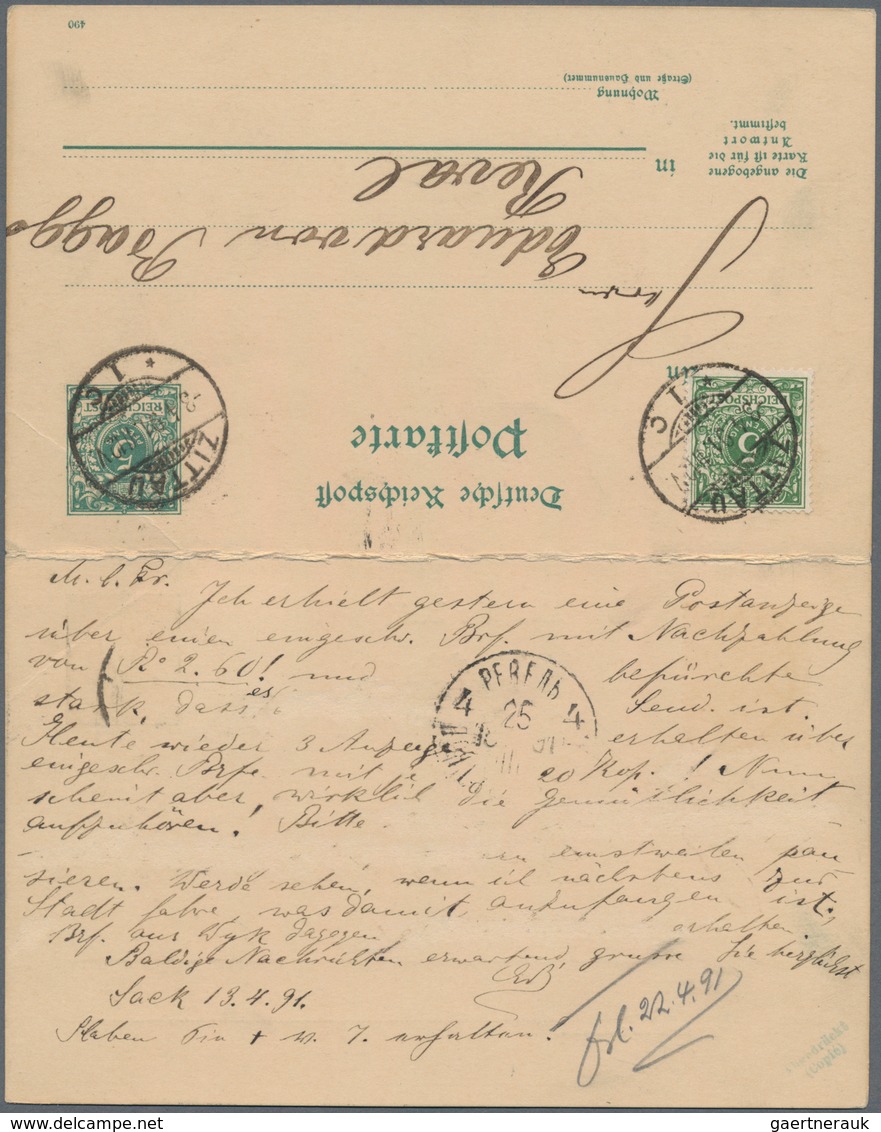 490
Wohnung
(Straße und Hausnummer)
Die angebogene
Karte ist für die
Antwort
bestimmt.
in
Reval
Eduard von Bagg
Herrn
An
Postkarte
Deutsche Reichspost
REICHSPOST
5
ZITTAU
1 C
REICHSPOST
5
ZITTAU
1 C
M. l. Fr.
Ich erhielt gestern eine Postanzeige
über einen eingeschr. Brf. mit Nachzahlung
von Ro 2.60! und befürchte
stark, dass es verl. ist.
Heute wieder 3 Anzeige erhalten über
eingeschr. Brfe. mit 20 Kop.! Nun
scheint aber, wirklich die Gemütlichkeit
aufzuhören! Bitte
zu einstweilen pau
sieren. Werde sehen, wenn ich nächstens zur
Stadt fahre, was damit anzufangen ist.
Brf. aus Dyk dagegen erhalten.
Baldige Nachrichten erwartend, grüsse Sie herzlichst
Sack 13.4.91.
Haben Sie + v. 7. erhalten?
РЕВЕЛЬ
4 25 4
22.4.91
(Copie)
delcampe.net
gaertnerauk